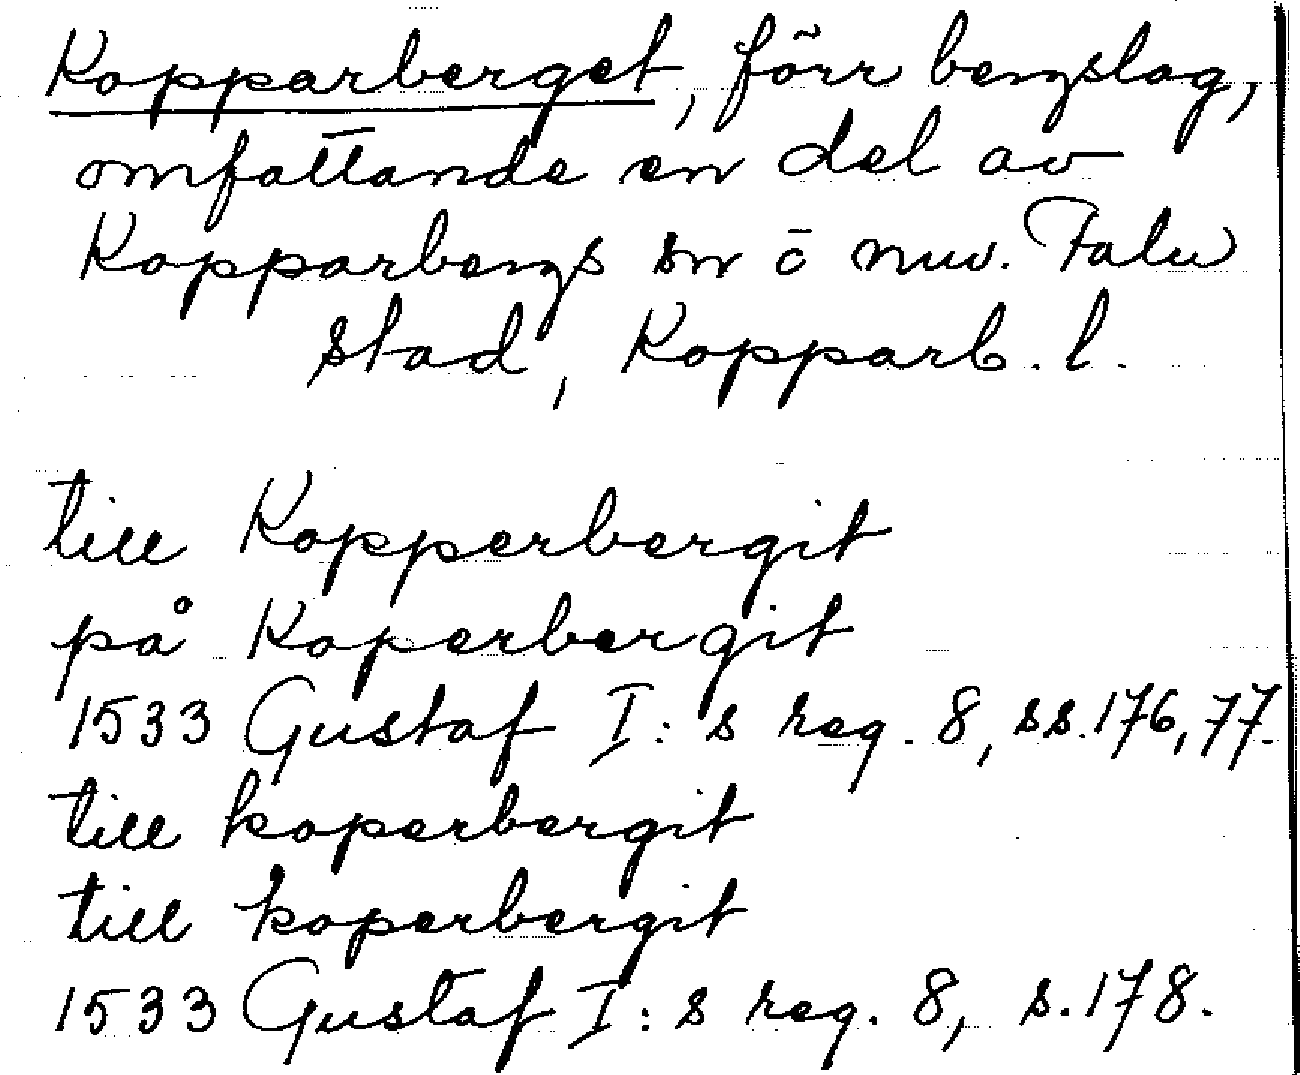 Kopparberget, förr bergslag,
omfattande en del av
Kopparbergs sn o nuv. Falu
stad, Kopparb. l.
till Kopperbergit
på Koperbergit
1533 Gustaf I:s reg. 8, ss. 176, 77.
till koperbergit
till koperbergit
1533 Gustaf I:s reg. 8, s. 178.